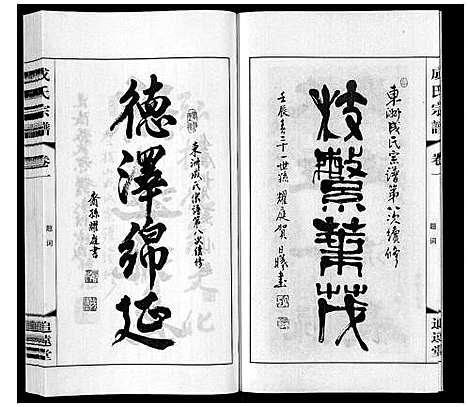 成氏宗譜
卷一
題詞
追遠堂
東洲成氏宗譜第八次續修
枝繁葉茂
壬辰春三十一世孫 耀庭賀
成氏宗譜
卷一
題詞
追遠堂
東洲成氏宗譜第八次續修
德澤綿延
裔孫耀庭書